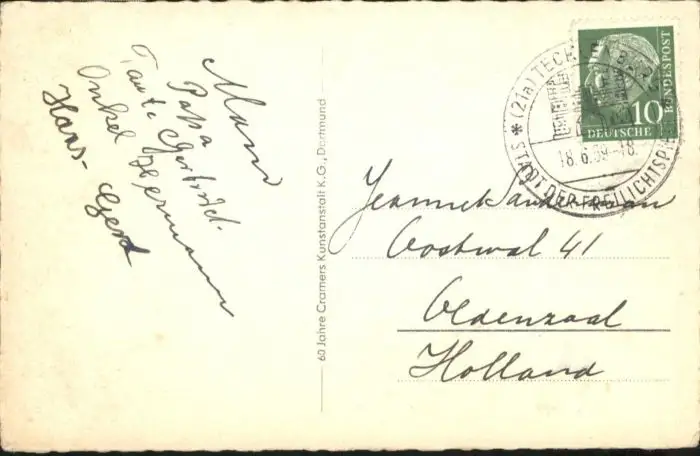 Mama
Papa
Tante Gertrud.
Onkel Hermann
Hans-Gerd
60 Jahre Cramers Kunstanstalt K.G., Dortmund
10
DEUTSCHE
BUNDESPOST
* (21a) TECKLENBURG *
18.6.59-18
STADT DER FREILICHTSPIELE
Jeannet Sanderman
Oostwal 41
Oldenzaal
Holland